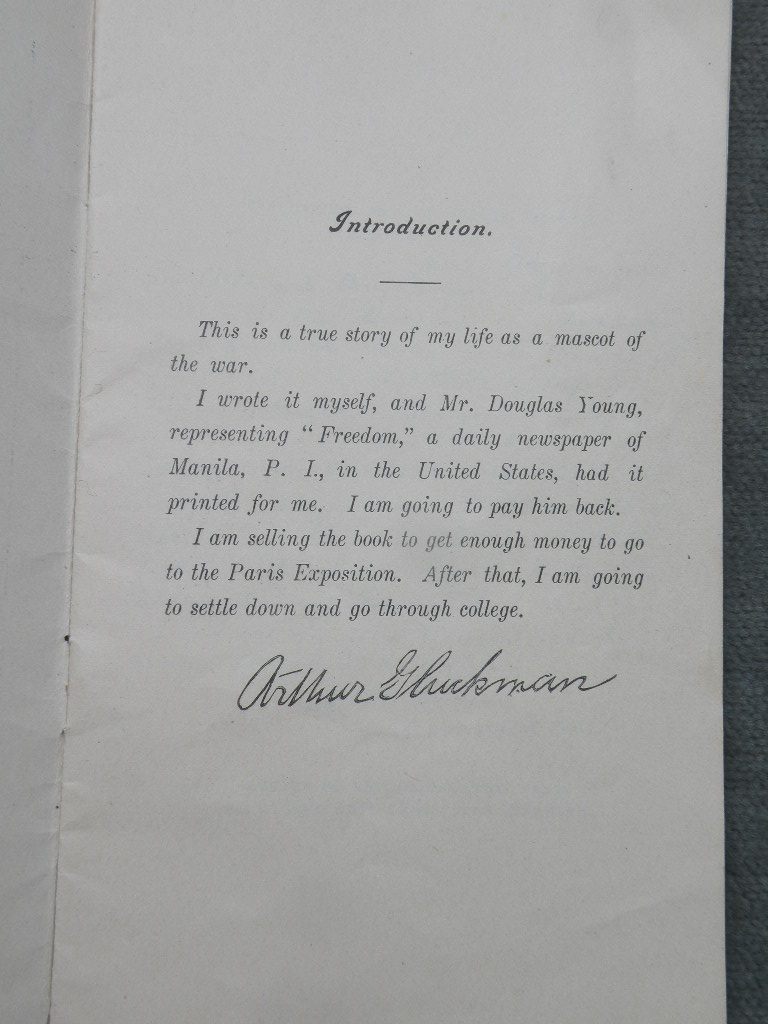 Introduction.
This is a true story of my life as a mascot of
the war.
I wrote it myself, and Mr. Douglas Young,
representing "Freedom," a daily newspaper of
Manila, P. I., in the United States, had it
printed for me. I am going to pay him back.
I am selling the book to get enough money to go
to the Paris Exposition. After that, I am going
to settle down and go through college.
Arthur Gluckman